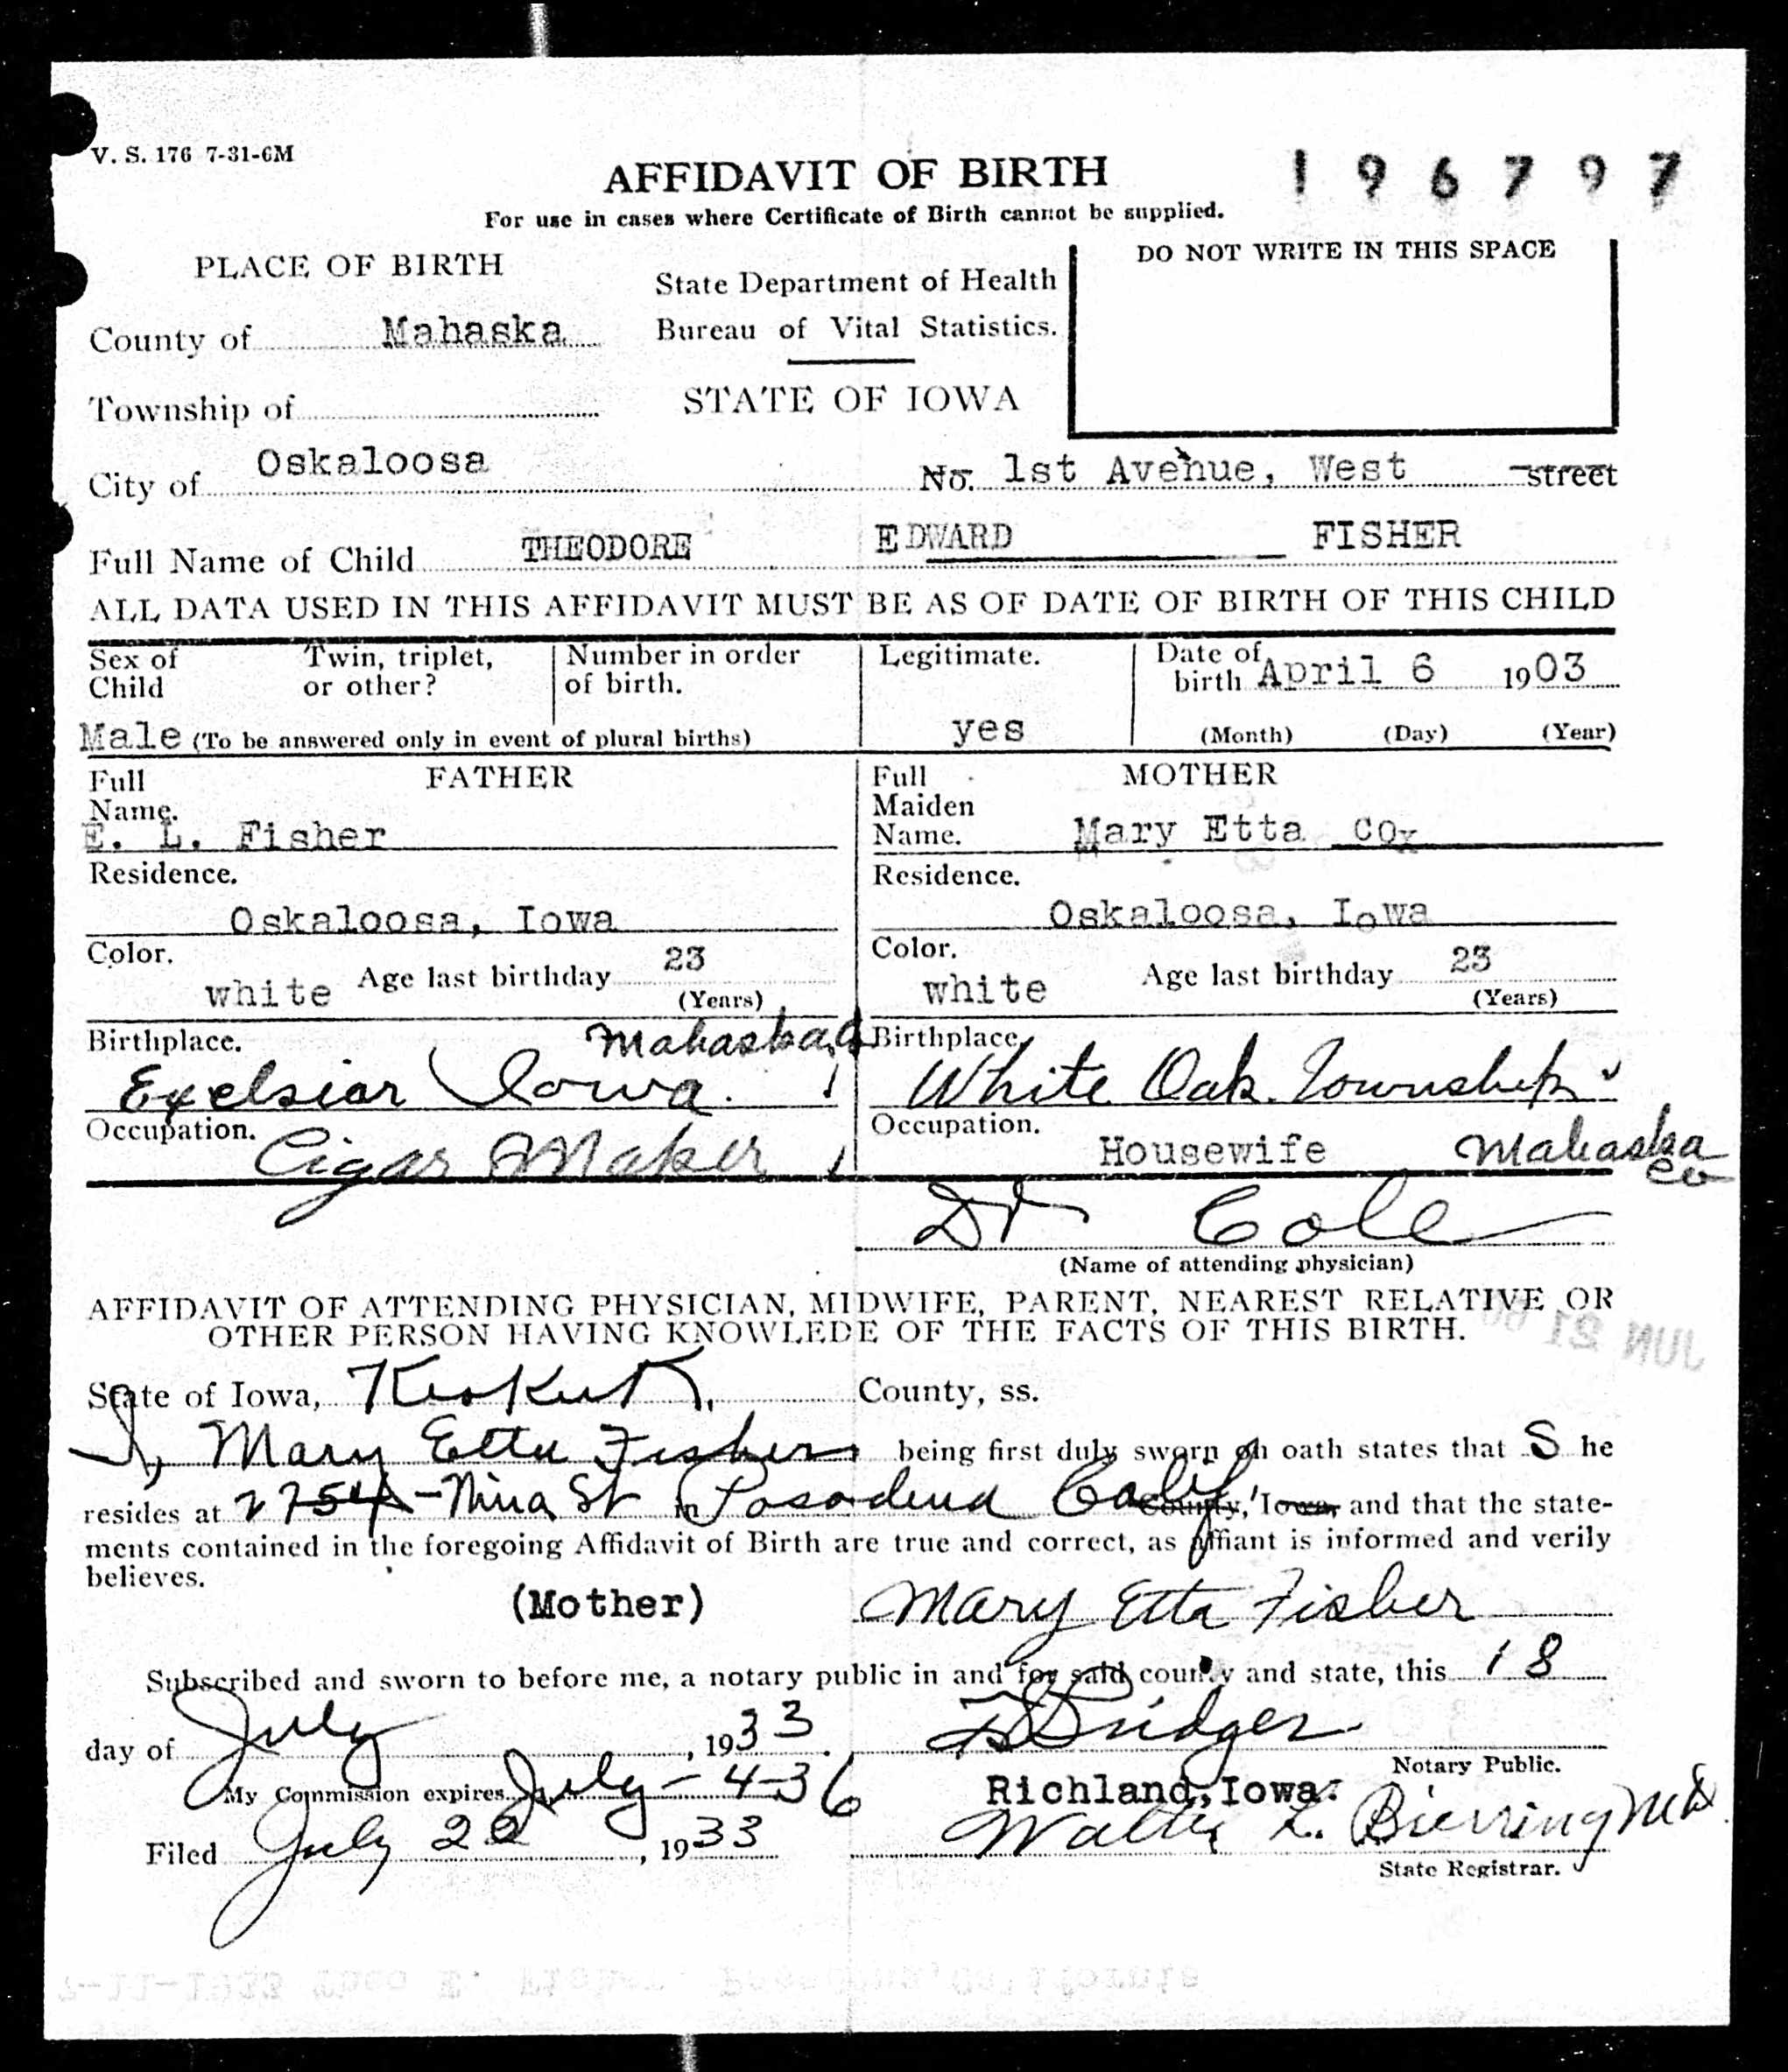 V. S. 176 7-31-6M
196797
AFFIDAVIT OF BIRTH
For use in cases where Certificate of Birth cannot be supplied.
DO NOT WRITE IN THIS SPACE
PLACE OF BIRTH
State Department of Health
Bureau of Vital Statistics.
County of Mahaska
Township of
STATE OF IOWA
City of Oskaloosa No. 1st Avenue, West street
Full Name of Child THEODORE EDWARD FISHER
ALL DATA USED IN THIS AFFIDAVIT MUST BE AS OF DATE OF BIRTH OF THIS CHILD
Sex of Child Male
Twin, triplet, or other?
Number in order of birth.
(To be answered only in event of plural births)
Legitimate. yes
Date of birth April 6 1903
(Month) (Day) (Year)
FATHER
Full Name. E. L. Fisher
Residence.
Oskaloosa, Iowa
Color. white Age last birthday 23
(Years)
Birthplace. Mahaska
Excelsior Iowa.
Occupation. Cigar Maker
MOTHER
Full Maiden Name. Mary Etta Cox
Residence.
Oskaloosa, Iowa
Color. white Age last birthday 23
(Years)
Birthplace.
White Oak Township
Occupation. Housewife Mahaska Co
Dr Cole
(Name of attending physician)
AFFIDAVIT OF ATTENDING PHYSICIAN, MIDWIFE, PARENT, NEAREST RELATIVE OR
OTHER PERSON HAVING KNOWLEDE OF THE FACTS OF THIS BIRTH.
JUN 21
State of Iowa, Keokuk County, ss.
I, Mary Etta Fisher being first duly sworn on oath states that S he
resides at 2754 - Nina St in Pasadena Calif County, Iowa, and that the state-
ments contained in the foregoing Affidavit of Birth are true and correct, as affiant is informed and verily
believes.
(Mother) Mary Etta Fisher
Subscribed and sworn to before me, a notary public in and for said county and state, this 18
day of July, 1933.
Notary Public.
My Commission expires July - 4-36 Richland, Iowa.
Filed July 22, 1933 Walter L. Bierring MD
State Registrar.